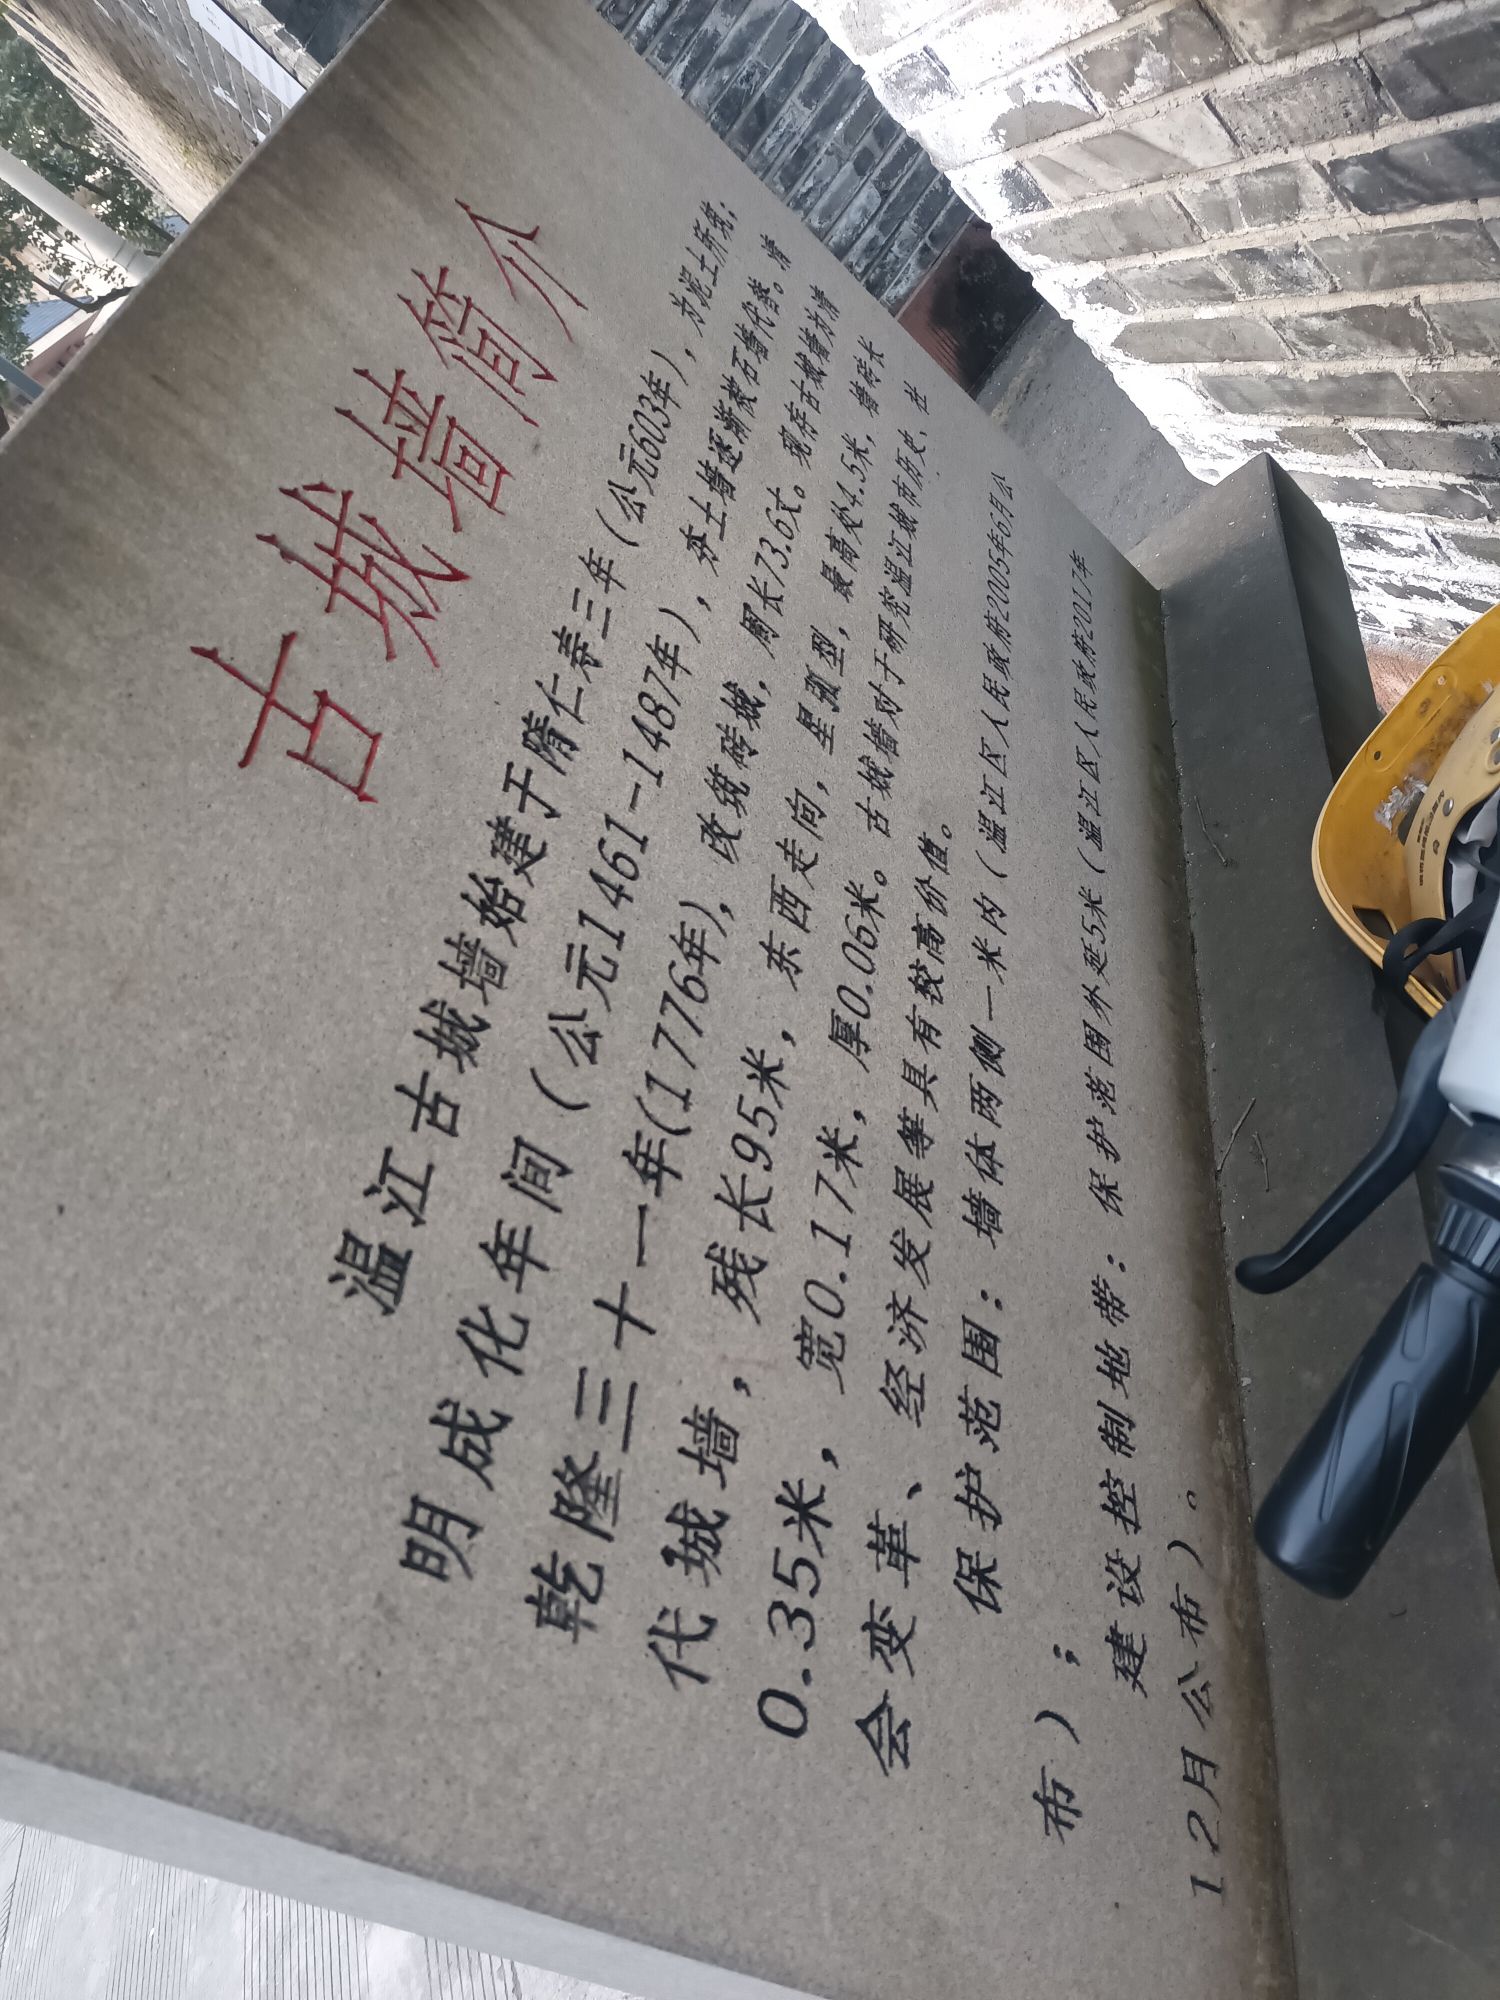 古城墙简介
温江古城墙始建于隋仁寿三年（公元603年），为泥土所筑。
明成化年间（公元1461-1487年），夯土墙逐渐被石墙代替。清
乾隆三十一年(1776年)，改筑砖城，周长73.6丈。现存古城墙为清
代城墙，残长95米，东西走向，呈弧型，最高处4.5米，墙砖长
0.35米，宽0.17米，厚0.06米。古城墙对于研究温江城市历史、社
会变革、经济发展等具有较高价值。
保护范围：墙体两侧一米内（温江区人民政府2005年6月公
布）；
建设控制地带：保护范围外延5米（温江区人民政府2017年
12月公布）。